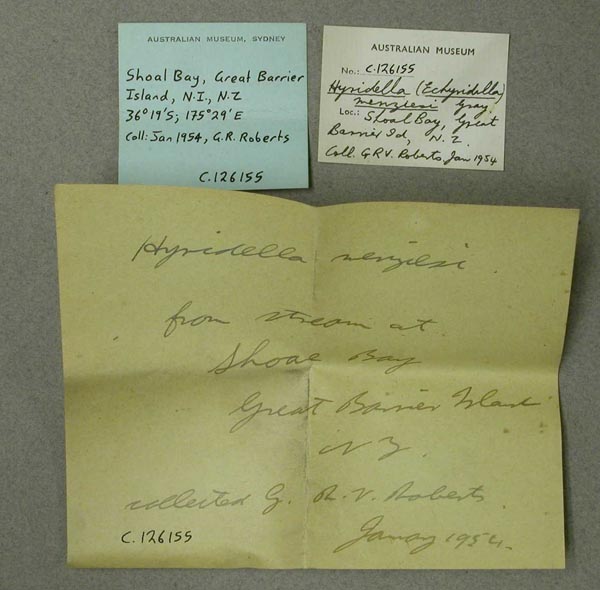 AUSTRALIAN MUSEUM, SYDNEY
Shoal Bay, Great Barrier
Island, N.I., N.Z
36°19'S; 175°29'E
Coll: Jan 1954, G.R. Roberts
C.126155
AUSTRALIAN MUSEUM
No.: C.126155
Hyridella (Echyridella)
menziesi Gray
Loc.: Shoal Bay, Great
Barrier Id, N.Z.
Coll. G.R.V. Roberts Jan 1954
Hyridella menziesi.
from stream at.
Shoal Bay
Great Barrier Island
N.Z.
collected G. R. V. Roberts.
January 1954.
C.126155